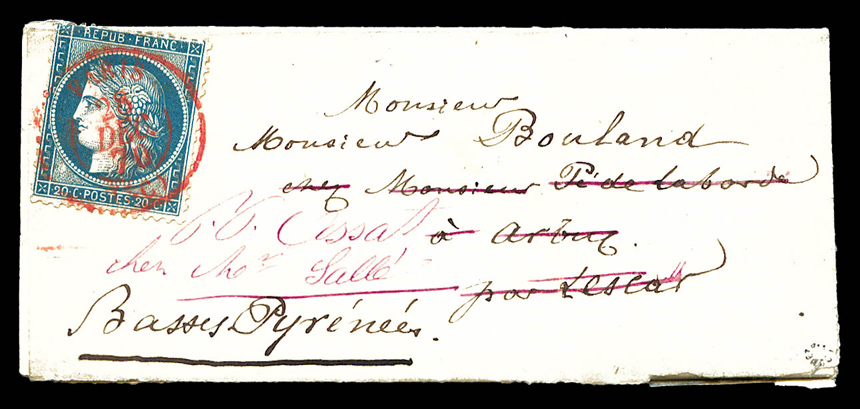 REPUB·FRANC
PARIS
DEC
20 C·POSTES·20 C
Monsieur
Monsieur Bouland
chez Monsieur Pé de Laborde
à Arbus.
par Lescar
chez Mr Sallé
Basses Pyrénées.